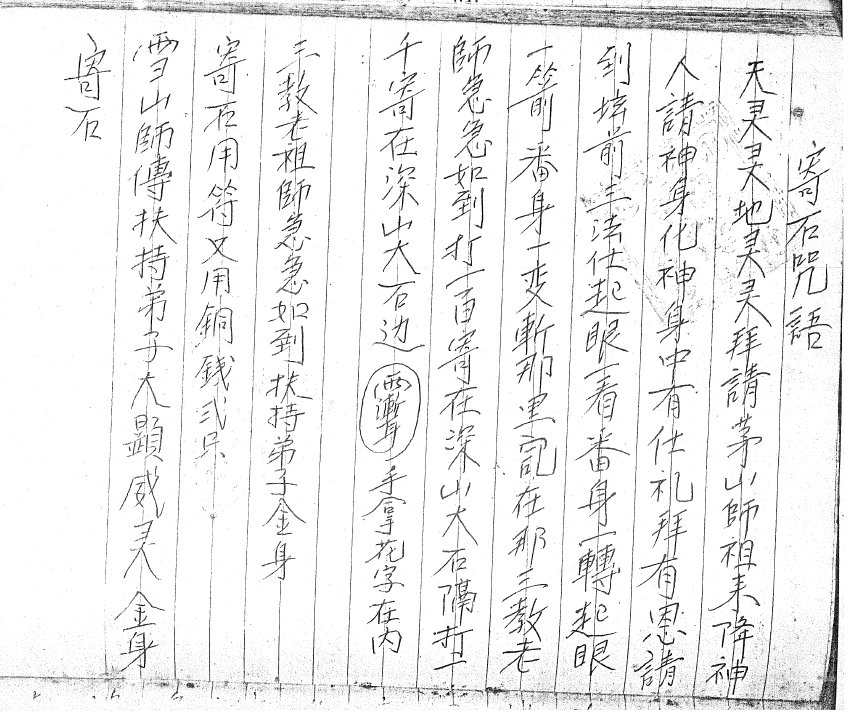 寄石咒語
天灵灵地灵灵拜請茅山師祖来降神
人請神身化神身中有仕礼拜有恩請
到坛前三法仕起眼一看番身一轉起眼
一箭番身一变斬那里寄在那三教老
師急急如到打一百寄在深山大石隔打一
千寄在深山大石边 手拿花字在内
三教老祖師急急如到扶持弟子金身
寄石用符又用銅銭弍只
雪山師傳扶持弟子大顯威灵金身
寄石